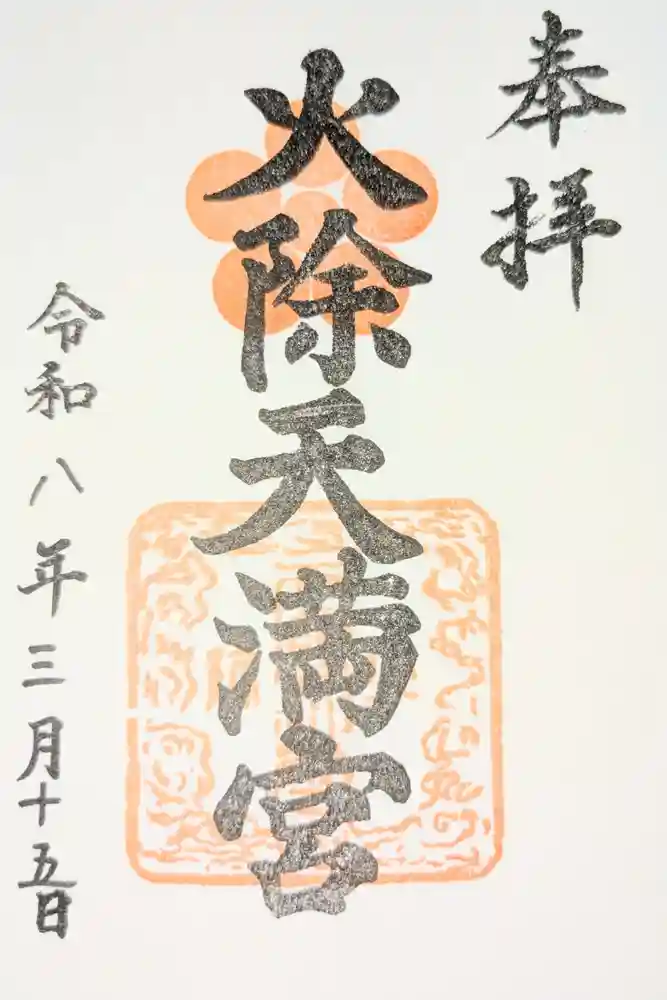 奉拝
火除天満宮
令和八年三月十五日